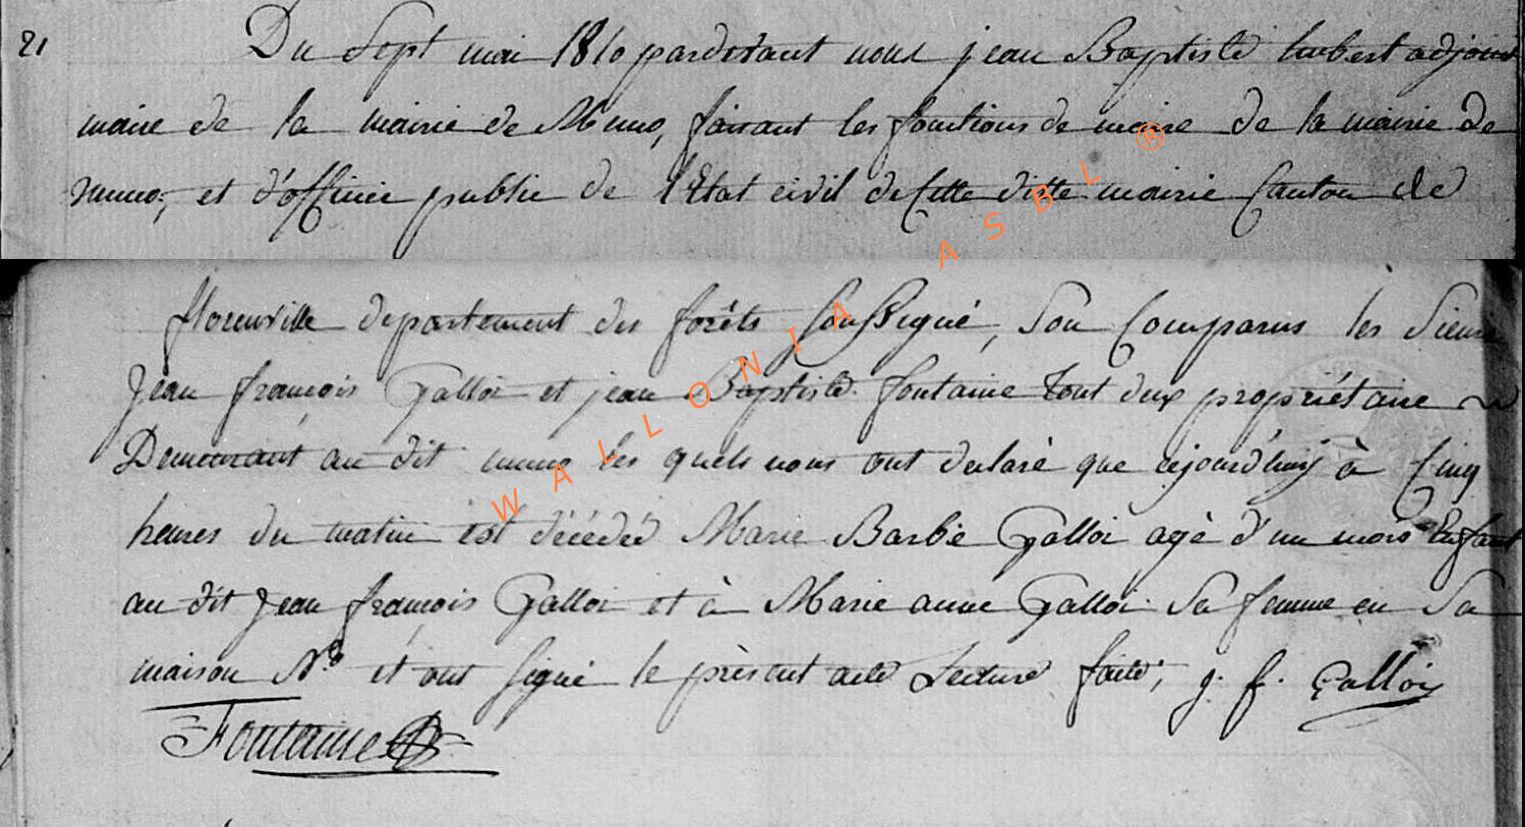 21 Du Sept mai 1810 pardevant nous jean Baptiste hubert adjoint
maire de la mairie de Muno, faisant les fonctions de maire de la mairie de
muno, et d'officier public de l'Etat civil de Cette ditte mairie Canton de
florenville departement des forêts soussigné, Son Comparus les Sieurs
Jean françois Galloi et jean Baptiste fontaine tout deux propriétaire
Demeurant au dit muno les quels nous ont declaré que cejourd'huy à Cinq
heures du matin est décédée Marie Barbe Galloi agé d'un mois Enfant
au dit Jean françois Galloi et à Marie anne Galloi Sa femme en Sa
maison N° et ont signé le présent acte Lecture faite, j. f. Galloi
Fontaine
WALLONIA ASBL ®